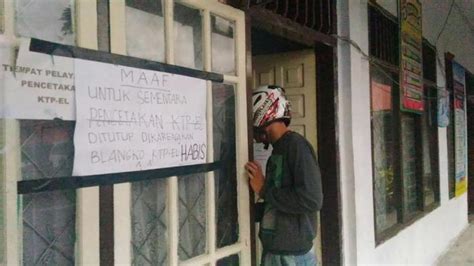 TEMPAT PELAYA
PENCETAKA
KTP-EL
MAAF
UNTUK SEMENTARA
PENCETAKAN KTP-EL
DITUTUP DIKARENAKAN
BLANGKO KTP-EL HABIS